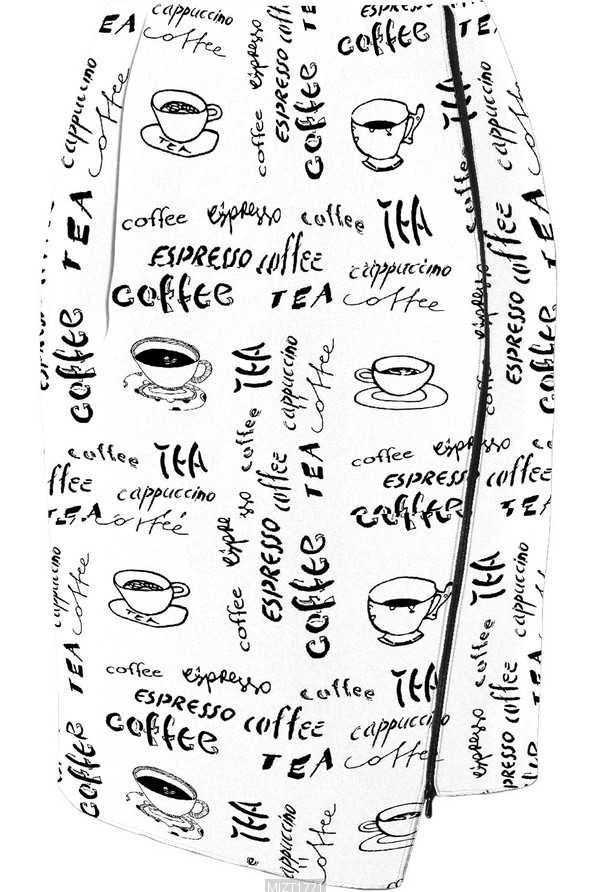 cappuccino
EA
coffee
espresso
ESPRESSO
coffee
COFFEE
ESPRESSO
COFFEE
TE
cappuccino
coffee
coffee
TEA
TEA
cappuccino
coffee
TEA
coffee
espresso
coffee
TEA
ESPRESSO
coffee
cappuccino
COFFEE
TEA
coffee
TEA
COFFEE
espresso
ESPRESSO
coffee
COFFEE
TEA
cappuccino
coffee
coffee
TEA
coffee
TEA
ffee
cappuccino
TEA
coffee
espresso
ESPRESSO
coffee
coffee
COFFEE
coffee
espresso
ESPRESSO
coffee
COFFEE
TE
cappuccino
coffee
TEA
TEA
COFFEE
TEA
cappuccino
coffee
coffee
espresso
coffee
TEA
ESPRESSO
coffee
cappuccino
COFFEE
TEA
coffee
espresso
coffee
TEA
cappuccino
coffee
MIZT1771